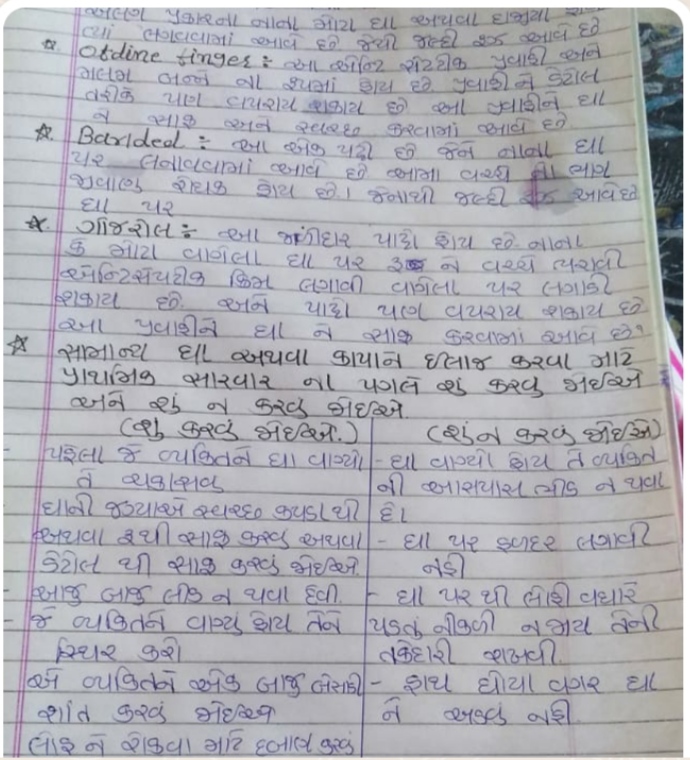 અલગ પ્રકારના નાના મોટા ઘા અથવા દાજીયા
ત્યાં લગાવવામાં આવે છે જેથી જલ્દી રૂજ આવે છે
☆ Otdine tinges : આ એન્ટિ સેપ્ટીક પ્રવાહી અને
મલમ બન્ને ના રૂપમાં હોય છે પ્રવાહીને ડેટોલ
તરીકે પણ વાપરાય શકાય છે આ પ્રવાહીને ઘા
ને સાફ અને સ્વચ્છ કરવામાં આવે છે.
☆ Banded : આ એક પટ્ટી છે જેને નાના ઘા
પર લગાવવામાં આવે છે આમા વચ્ચે નો ભાગ
જીવાણુ રોધક હોય છે। જેનાથી જલ્દી રૂજ આવે છે
ઘા પર
☆ ગોજરોલ : આ જાળીદાર પાટો હોય છે. નાના
કે મોટા વાગેલા ઘા પર રૂ ને વચ્ચે ભરાવી
એન્ટિસેપટીક ક્રિમ લગાવી વાગેલા પર લગાડી
શકાય છે. અને પાટો પણ વપરાય શકાય છે
આ પ્રવાહીને ઘા ને સાફ કરવામાં આવે છે?
☆ સામાન્ય ઘા અથવા કાપાને ઈલાજ કરવા માટે
પ્રાથમિક સારવાર ના પગલે શું કરવું જોઈએ
અને શું ન કરવું જોઈએ.
(શું કરવું જોઈએ.) (શું ન કરવું જોઈએ)
- પહેલા જે વ્યકિતને ઘા વાગ્યો - ઘા વાગ્યો હોય તે વ્યકિત
તે ચકાસવું ની આસપાસ ભીડ ન થવા
ઘાની જગ્યાએ સ્વચ્છ કપડાથી દો
અથવા રૂથી સાફ કરવું અથવા - ઘા પર હળદર લગાવી
ડેટોલ થી સાફ કરવું જોઈએ. નહી
- આજુ બાજુ ભીડ ન થવા દેવી. - ઘા પર થી લોહી વધારે
- જે વ્યકિતને વાગ્યું હોય તેને પડતું નીકળી ન જાય તેની
સ્થિર કરો તકેદારી રાખવી.
એ વ્યકિતને એક બાજુ બેસાડી - હાથ ધોયા વગર ઘા
શાંત કરવું જોઈએ ને અડવું નહી.
લોહી ને રોકવા માટે દબાણ કરવું